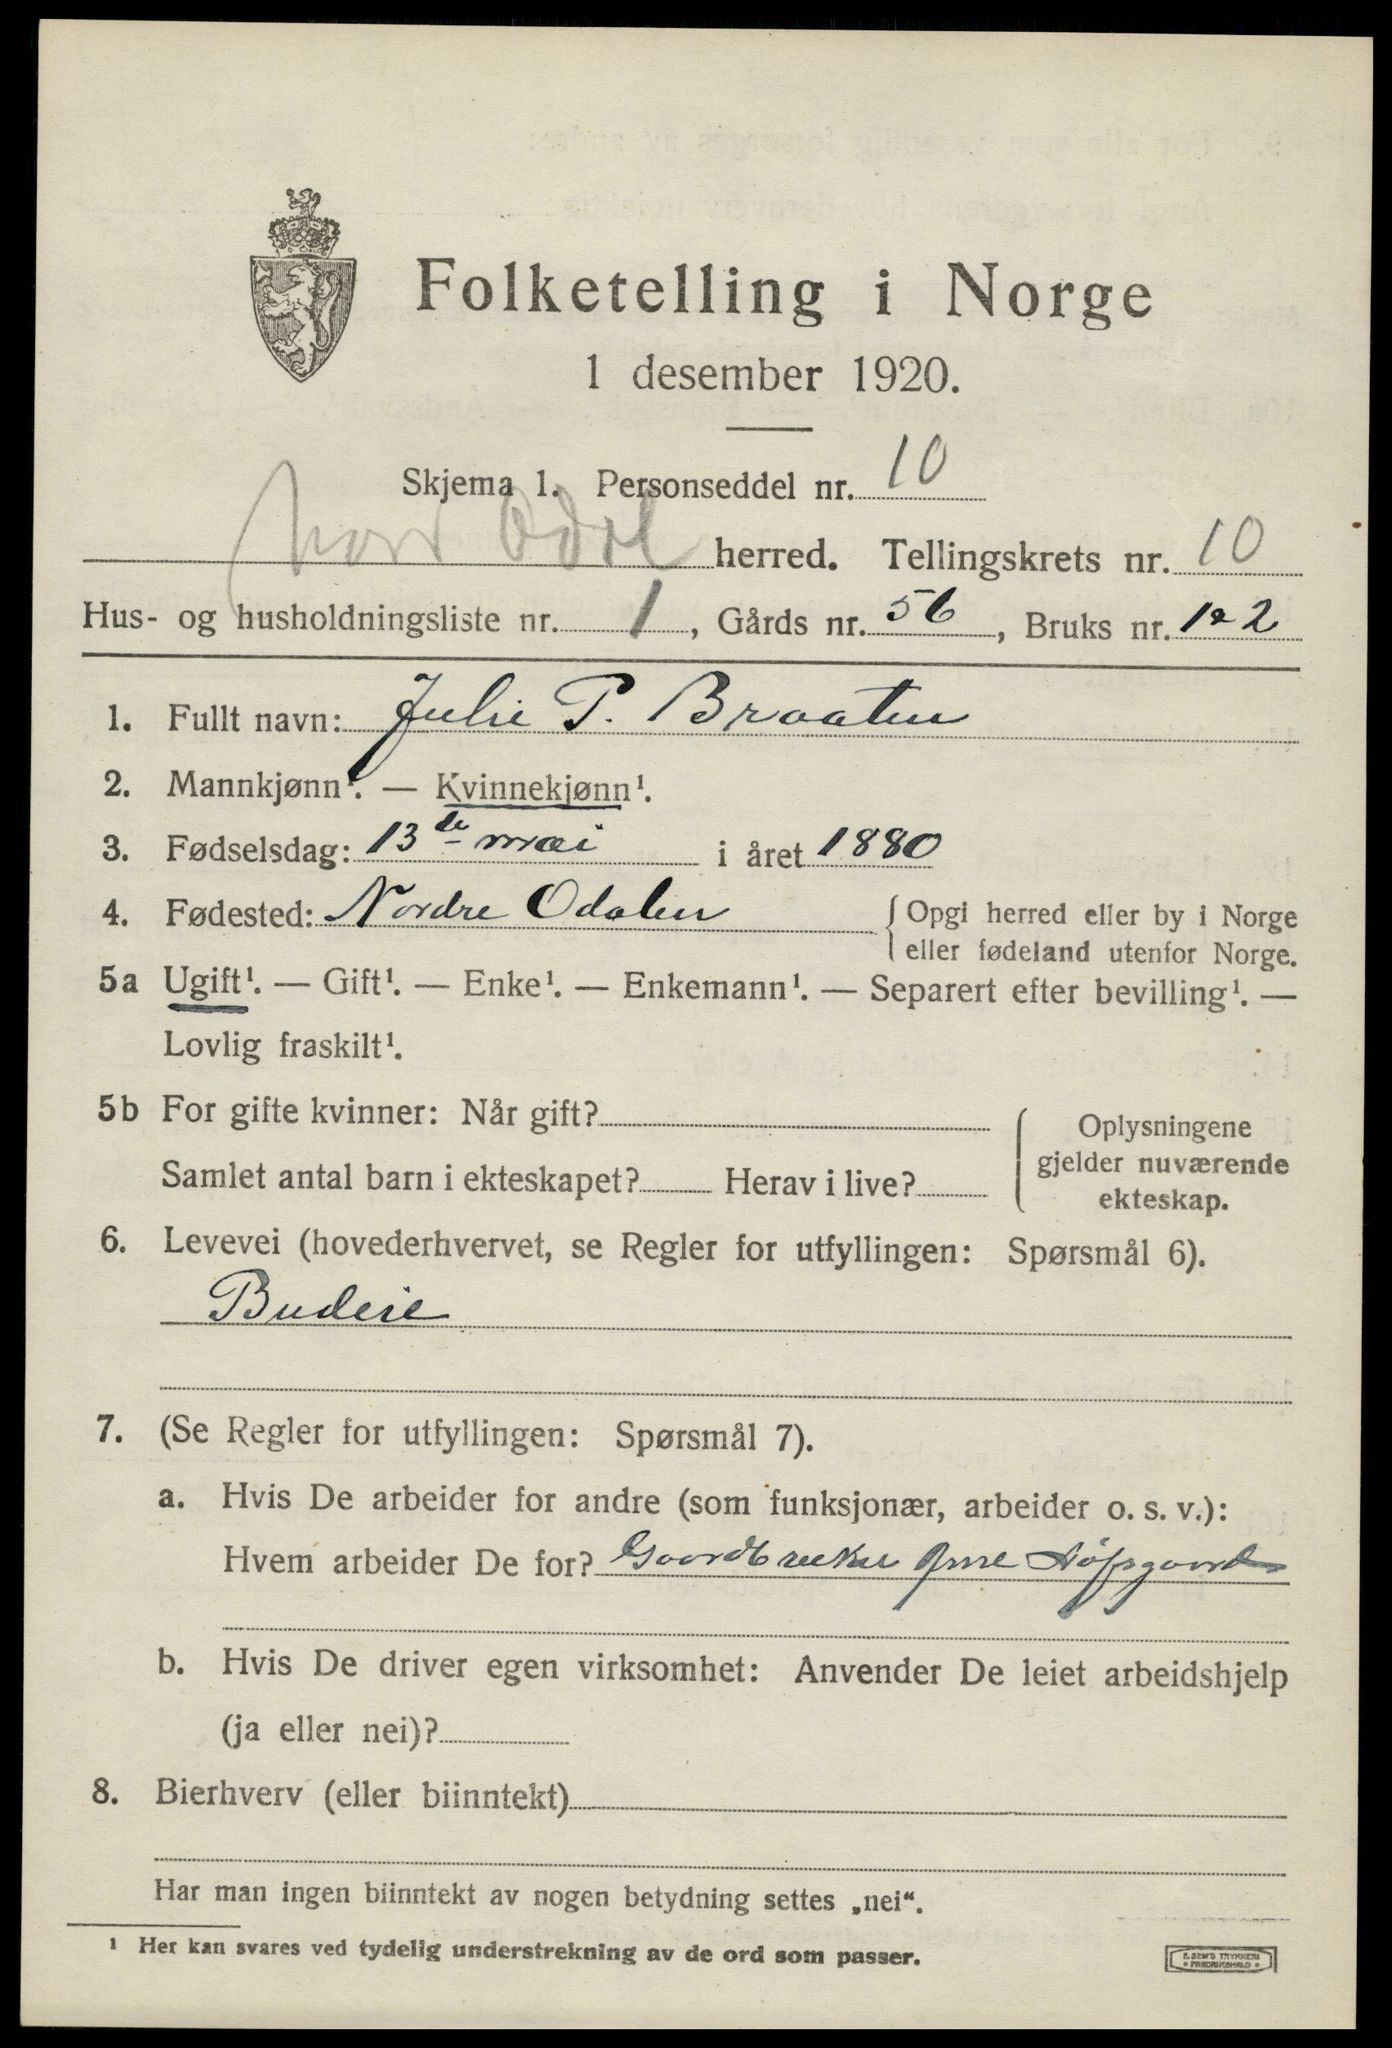 Folketelling i Norge
1 desember 1920.
Skjema 1. Personseddel nr. 10
Nord Odal herred. Tellingskrets nr. 10
Hus- og husholdningsliste nr. 1, Gårds nr. 56, Bruks nr. 1 a 2
1. Fullt navn: Julie P. Braaten
2. Mannkjønn¹. — Kvinnekjønn¹.
3. Fødselsdag: 13de mai i året 1880
4. Fødested: Nordre Odalen { Opgi herred eller by i Norge
eller fødeland utenfor Norge.
5a Ugift¹. — Gift¹. — Enke¹. — Enkemann¹. — Separert efter bevilling¹. —
Lovlig fraskilt¹.
5b For gifte kvinner: Når gift?
Samlet antal barn i ekteskapet? Herav i live?
Oplysningene
gjelder nuværende
ekteskap.
6. Levevei (hovederhvervet, se Regler for utfyllingen: Spørsmål 6).
Budeie
7. (Se Regler for utfyllingen: Spørsmål 7).
a. Hvis De arbeider for andre (som funksjonær, arbeider o. s. v.):
Hvem arbeider De for? Gaardbruker
b. Hvis De driver egen virksomhet: Anvender De leiet arbeidshjelp
(ja eller nei)?
8. Bierhverv (eller biinntekt)
Har man ingen biinntekt av nogen betydning settes „nei“.
¹ Her kan svares ved tydelig understrekning av de ord som passer.
E. SEM'S TRYKKERI
FREDRIKSHALD